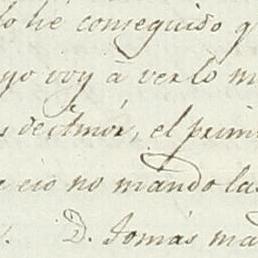 lo hé conseguido q
yo voy á verlo m
s decimór, el prim
e eio no mando las
. D. Tomás ma